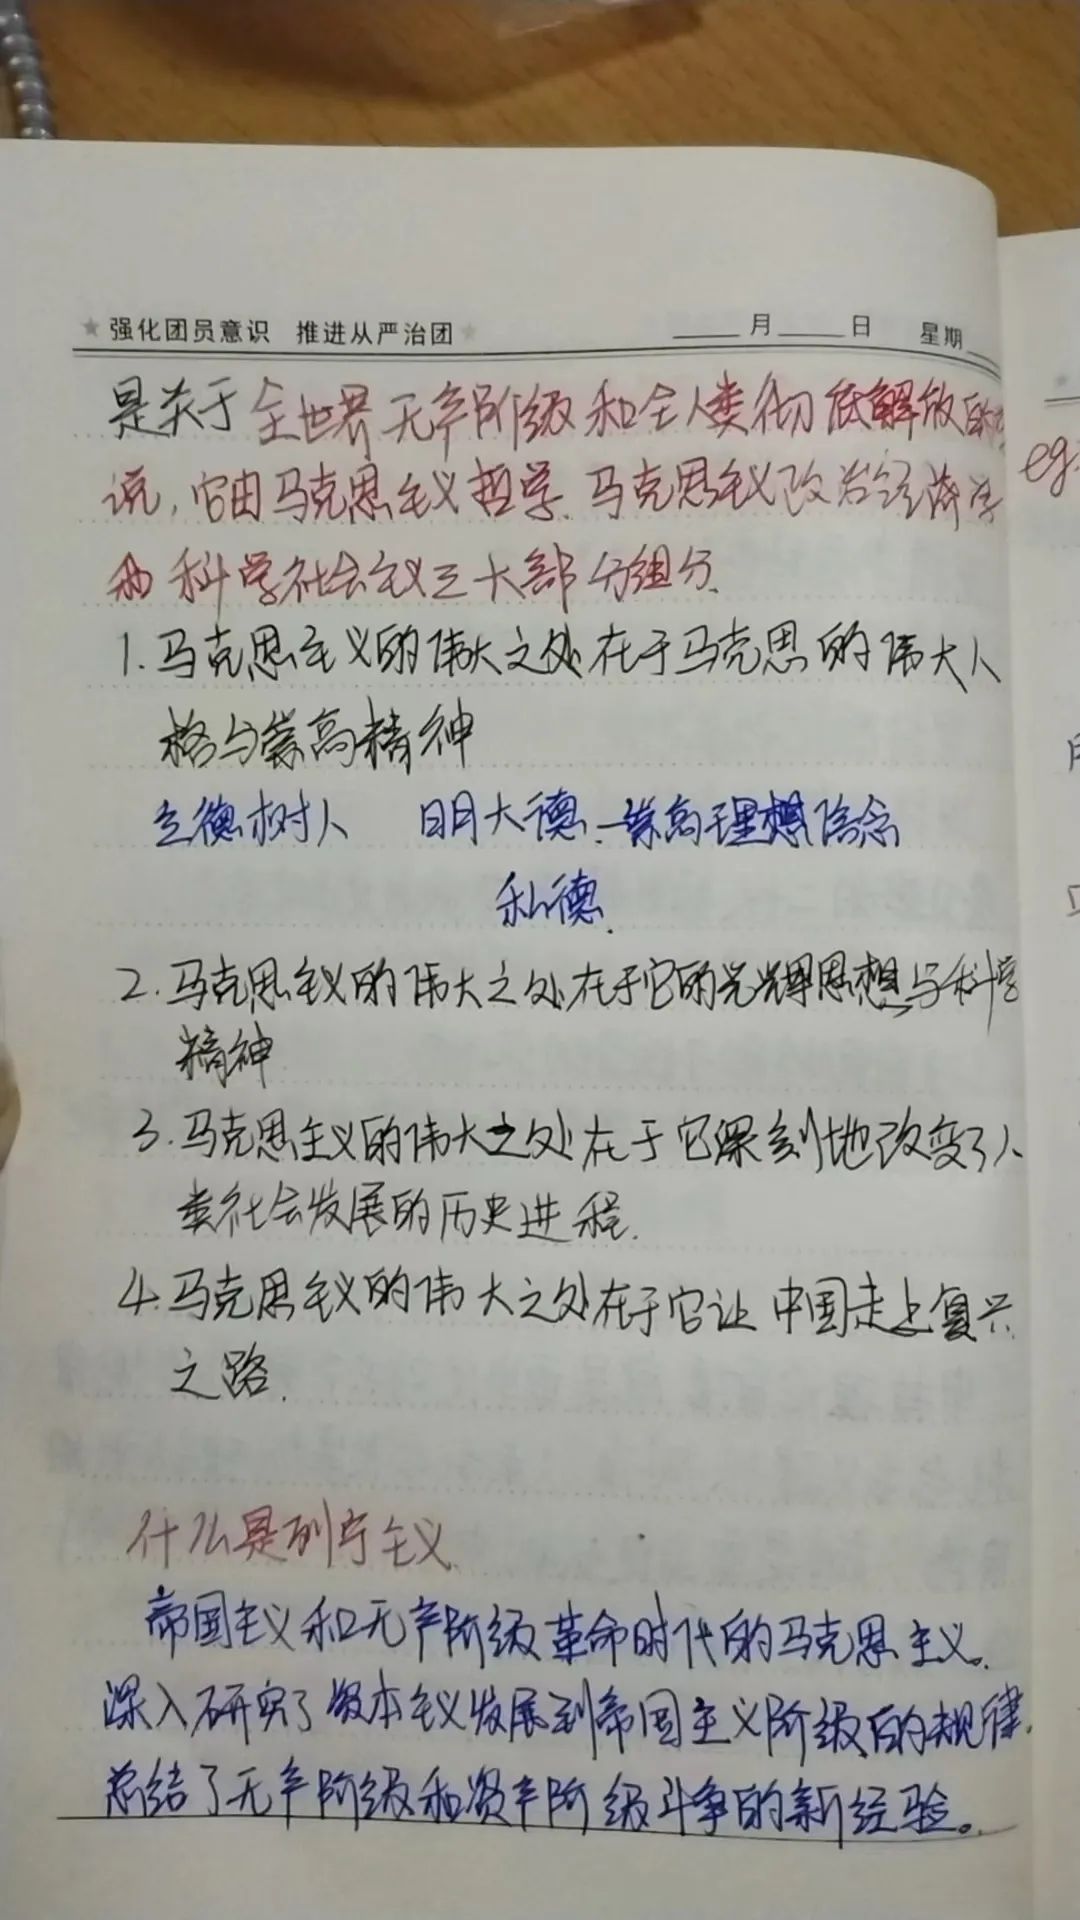 强化团员意识 推进从严治团 月 日 星期
是关于全世界无产阶级和全人类彻底解放的
说,它由马克思主义哲学、马克思主义政治经济学 eg.
和科学社会主义三大部分组分.
1.马克思主义的伟大之处在于马克思的伟大人
格与崇高精神
立德树人 明大德.—崇高理想信念
私德.
2.马克思主义的伟大之处在于它的光辉思想与科学
精神
3.马克思主义的伟大之处在于它深刻地改变了人
类社会发展的历史进程.
4.马克思主义的伟大之处在于它让中国走上复兴
之路.
什么是列宁主义.
帝国主义和无产阶级革命时代的马克思主义。
深入研究了资本主义发展到帝国主义阶级的规律.
总结了无产阶级和资产阶级斗争的新经验。